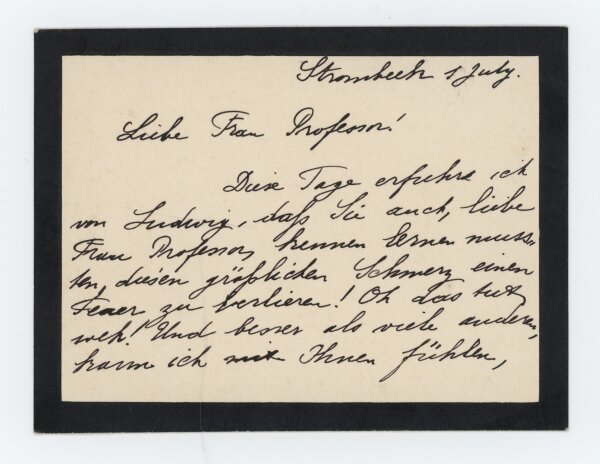 Strombeek 1 July.
Liebe Frau Professor!
Diese Tage erfuhre ich
von Ludwig, daß Sie auch, liebe
Frau Professor, kennen lernen muss-
ten, diesen gräßlichen Schmerz einen
Teuer zu verlieren! Oh das tut
weh! Und besser als viele anderen,
kann ich mit Ihnen fühlen,